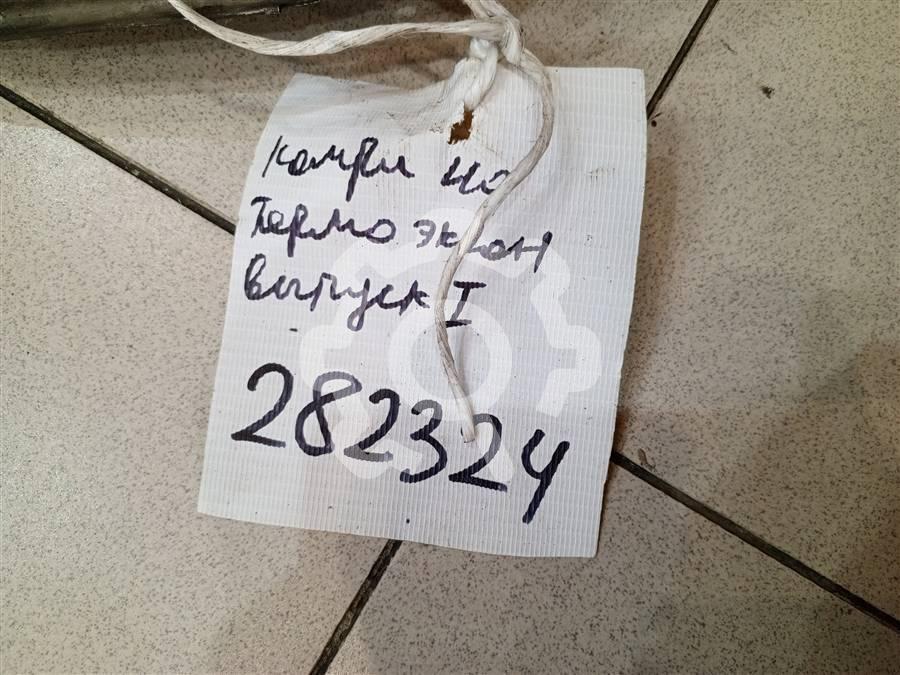 камри 40
Термо экран
выпуск I
282324